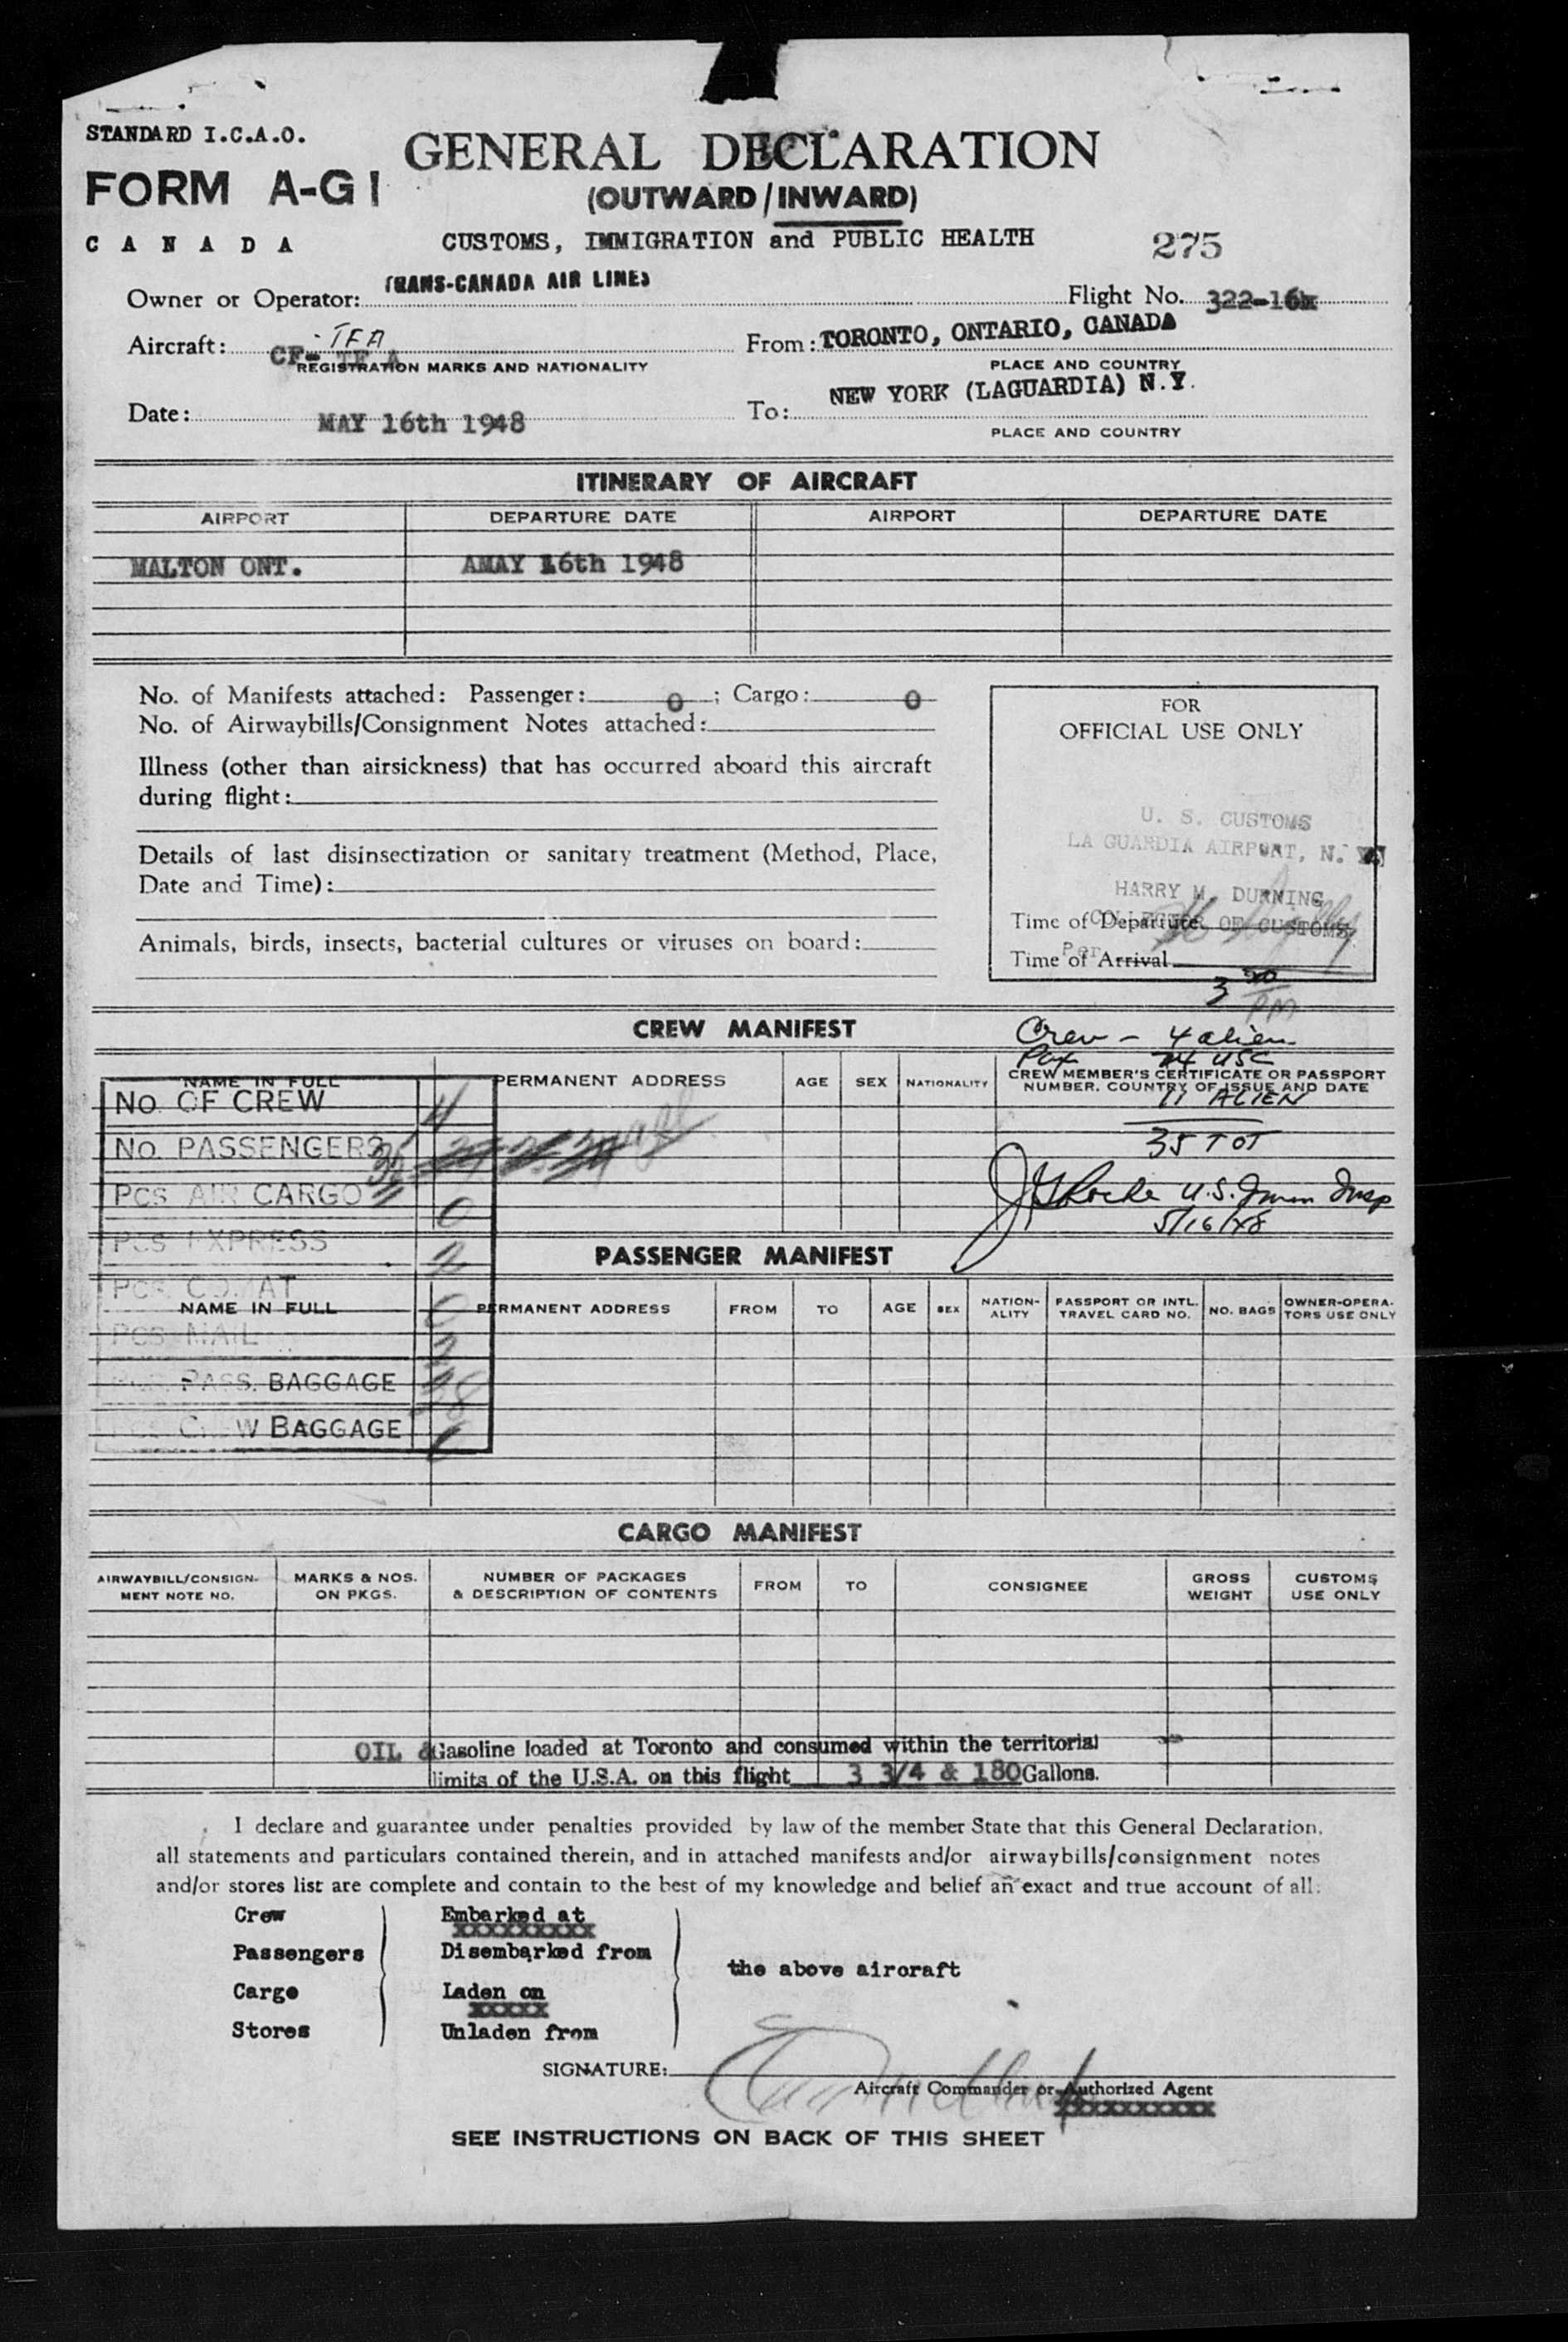 STANDARD I.C.A.O.
FORM A-G1
CANADA
GENERAL DECLARATION
(OUTWARD/INWARD)
CUSTOMS, IMMIGRATION and PUBLIC HEALTH
275
Owner or Operator: TRANS-CANADA AIR LINES Flight No. 322-16
Aircraft: CF-TFA -TFA
REGISTRATION MARKS AND NATIONALITY
From: TORONTO, ONTARIO, CANADA
PLACE AND COUNTRY
Date: MAY 16th 1948
To: NEW YORK (LAGUARDIA) N.Y.
PLACE AND COUNTRY
ITINERARY OF AIRCRAFT
AIRPORT DEPARTURE DATE AIRPORT DEPARTURE DATE
MALTON ONT. AMAY 16th 1948
No. of Manifests attached: Passenger: 0; Cargo: 0
No. of Airwaybills/Consignment Notes attached:
Illness (other than airsickness) that has occurred aboard this aircraft
during flight:
Details of last disinsectization or sanitary treatment (Method, Place,
Date and Time):
Animals, birds, insects, bacterial cultures or viruses on board:
FOR
OFFICIAL USE ONLY
U. S. CUSTOMS
LA GUARDIA AIRPORT, N.
HARRY M. DURNING
COLLECTOR OF CUSTOMS
Time of Departure
Per
Time of Arrival
3 PM
CREW MANIFEST
Crew - 4 alien
Pax 24 USC
NAME IN FULL PERMANENT ADDRESS AGE SEX NATIONALITY CREW MEMBER'S CERTIFICATE OR PASSPORT
NUMBER. COUNTRY OF ISSUE AND DATE
11 ALIEN
35 TOT
U.S. Imm Insp
5/16/48
NO. OF CREW 4
NO. PASSENGERS 35
PCS AIR CARGO 0
PCS EXPRESS 2
PCS CO. MAT 0
PCS MAIL 2
PASS. BAGGAGE 38
CREW BAGGAGE
PASSENGER MANIFEST
NAME IN FULL PERMANENT ADDRESS FROM TO AGE SEX NATION-
ALITY PASSPORT OR INTL.
TRAVEL CARD NO. NO. BAGS OWNER-OPERA-
TORS USE ONLY
CARGO MANIFEST
AIRWAYBILL/CONSIGN-
MENT NOTE NO. MARKS & NOS.
ON PKGS. NUMBER OF PACKAGES
& DESCRIPTION OF CONTENTS FROM TO CONSIGNEE GROSS
WEIGHT CUSTOMS
USE ONLY
OIL & Gasoline loaded at Toronto and consumed within the territorial
limits of the U.S.A. on this flight 3 3/4 & 180 Gallons.
I declare and guarantee under penalties provided by law of the member State that this General Declaration,
all statements and particulars contained therein, and in attached manifests and/or airwaybills/consignment notes
and/or stores list are complete and contain to the best of my knowledge and belief an exact and true account of all:
Crew Embarked at
xxxxxxxxx
Passengers Disembarked from
the above aircraft
Cargo Laden on
xxxxx
Stores Unladen from
SIGNATURE:
Aircraft Commander or Authorized Agent
xxxxxxxxxx
SEE INSTRUCTIONS ON BACK OF THIS SHEET